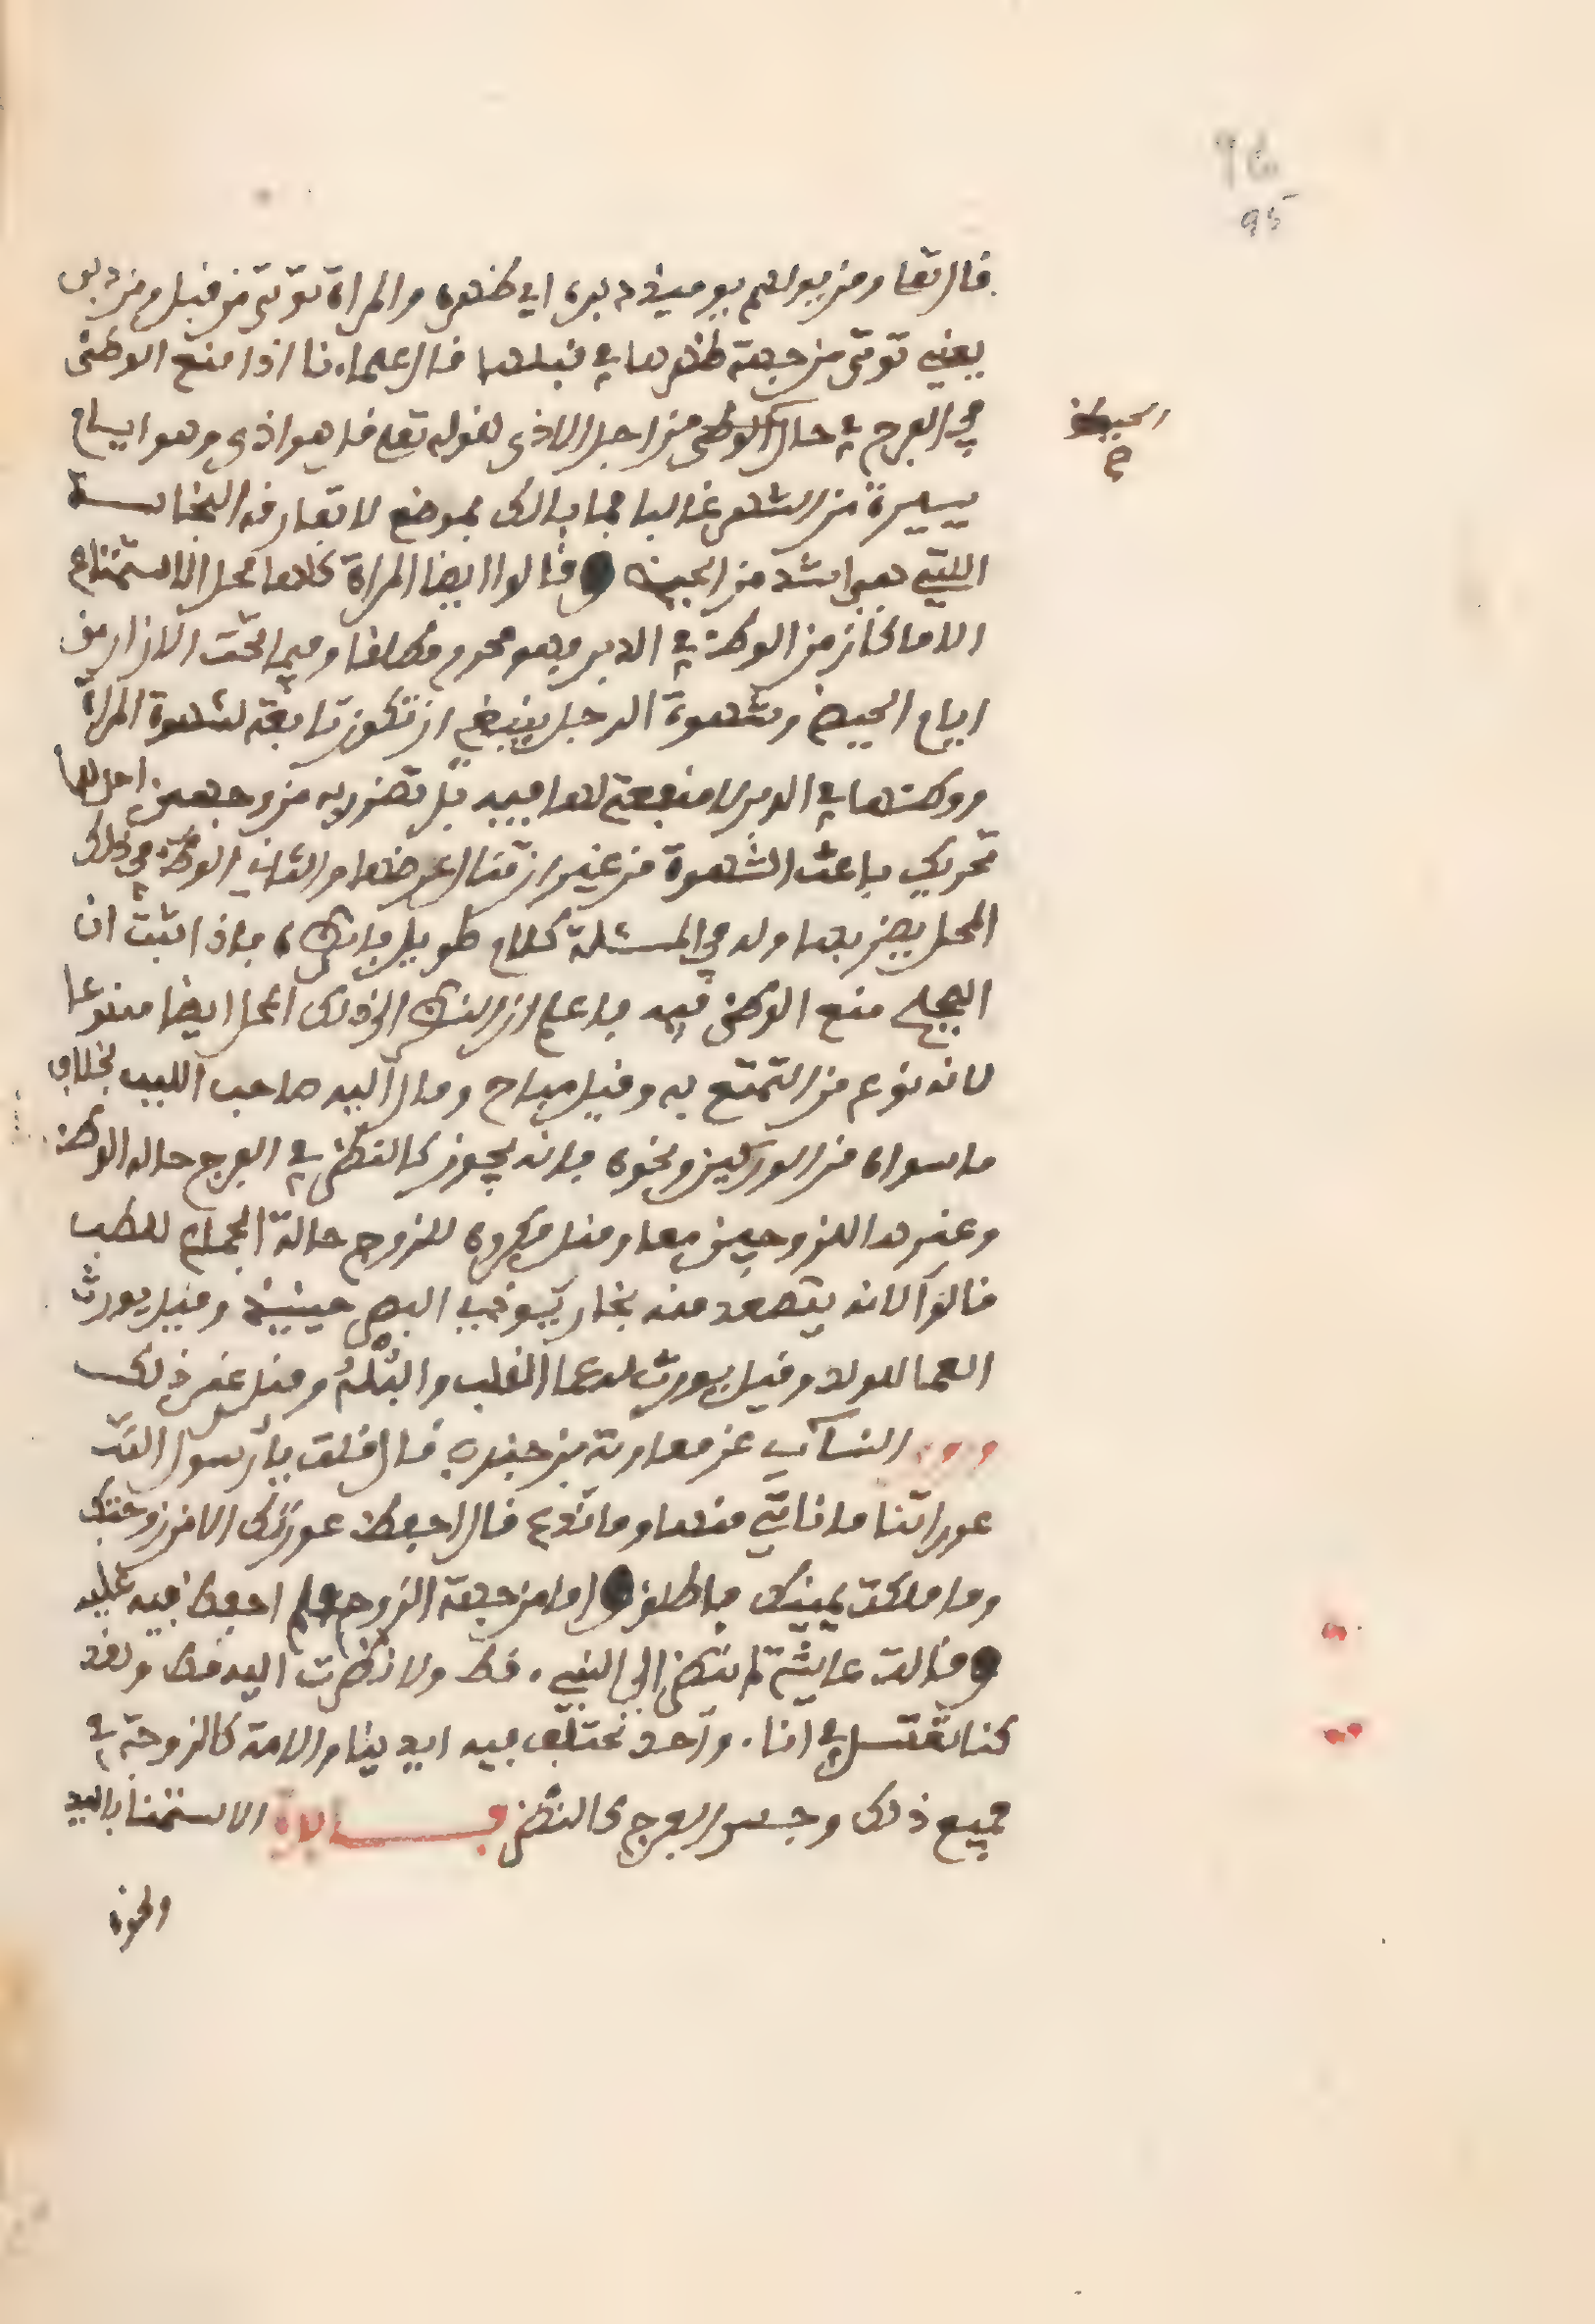 95
قال تعا ومن يولهم يوميذ دبره اي ظهره والمراة توتى من قبل ومن دبر
يعني توتى من جهة ظهرها في قبلها قال علماءنا اذا منع الوطئ
في الفرج في حال الوطئ من اجل الاذى لقوله تعلى قل هو اذى وهو ايام
الحيض
يسيرة من الشهر غالبا فما بالك بموضع لا تفارقه النجاسة
اللتي هي اشد من الحيض وقالوا ايضا المراة كلها محل الاستمتاع
الا ما كان من الوطئ في الدبر وهو محرم مطلقا وفيما تحت الازار من
ايام الحيض وشهوة الرجل ينبغي ان تكون تابعة لشهوة المراة
ووطئها في الدبر لا منفعة لها فيه بل تضر به من وجهين احدها
تحريك باعث الشهوة من غير ان تنال غرضها والثاني الوطئ في ذلك
المحل يضر بها وله في المسئلة كلام طويل فانظره فاذا ثبت ان
الصحيح منع الوطئ فيه فاعلم ان النظر الى ذلك المحل ايضا ممنوعا
لانه نوع من التمتع به وقيل مباح ومال اليه صاحب اللبيب بخلاف
ما سواه من الوركين ونحوه فانه يجوز كالنظر في الفرج حالة الوطئ
وغيرها للزوجين معا وقيل مكروه للزوج حالة الجماع للطب
قالوا لانه يتصعد منه بخار يوذي البصر حينيذ وقيل يورث
العما للولد وقيل يورث له عما القلب والبله وقيل غير ذلك
النسآي عن معاوية بن حيدة قال قلت يا رسول الله
عوراتنا ما ناتي منها وما نذع قال احفظ عورتك الا من زوجتك
وما ملكت يمينك فاطلق واما من جهة الزوج فلم احفظ فيه عليه
وقالت عايشة لم ينظر الي النبيء قط ولا نظرت اليه قط ولقد
كنا نغتسل في اناء واحد تختلف فيه ايدينا والامة كالزوجة في
جميع ذلك وجس الفرج كالنظر فايدة الاستمنا باليد
ونحوه